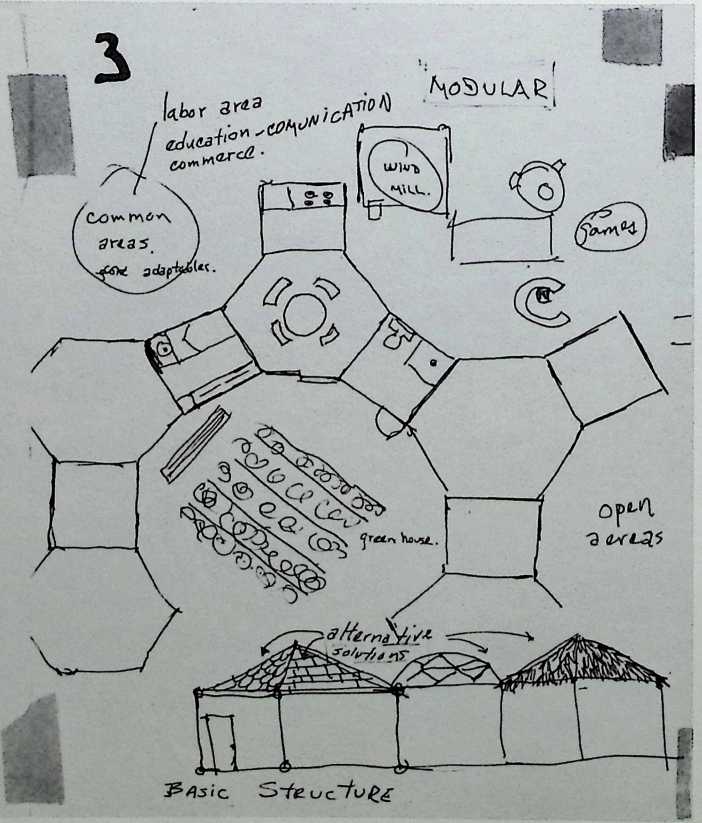 3
MODULAR
labor area
education-COMUNICATION
commerce.
WIND
MILL.
common
areas.
adaptables.
games
green house.
open
aereas
alternative
solutions
BASIC STRUCTURE